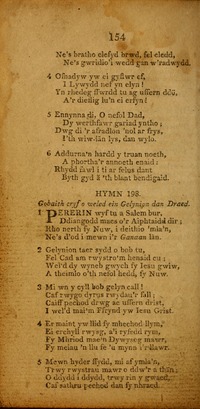 154
Ne's bratho clefyd brwd, fel cledd,
Ne's gwridio'i wedd gan w'radwydd.
4 Ofnadwy yw ei gyflwr ef,
I Lywydd nef yn elyn!
Yn rhedeg ffwrdd tu ag uffern ddû,
A'r diefl lu'n ei erlyn!
5 Ennynna di, O nefol Dad,
Dy werthfawr gariad ynddo;
Dwg di 'r afradlon 'nol ar frys,
I'th wiw-lân lys, dan wylo.
6 Addurna'n hardd y truan noeth,
A phortha'r annoeth enaid:
Rhydd fawl i ti ar felus dant
Byth gyd â 'th blant bendigaid.
HYMN 198.
Gobaith cryf a weled ein Gelynion dan Draed.
1 PERERIN wyf tu a Salem bur,
Ddiangodd maes o'r Aiphtaidd dir;
Rho nerth fy Nuw, i deithio 'mla'n,
Ne's d'od i mewn i'r Ganaan lân.
2 Gelynion taer sydd o bob tu,
Fel Cad am rwystro'm henaid cu;
Wel'd dy wyneb gwych fy Iesu gwiw,
A theimlo o'th nefol hedd, fy Nuw.
3 Mi wn y cyll bob gelyn call!
Caf
Caiff pechod drwg ac uffern drist,
I wel'd mai'm Ffrynd yw Iesu Grist.
4 Er maint yw llid fy mhechod llym,
Ei erchyll rwysg, a'i ryfedd rym,
Fy Mhriod mae'n Dywysog mawr,
Fy meiau 'n llu fe 'u mynn i'r llawr.
5 Mewn hyder ffydd, mi af ymla'n,
Trwy rwystrau mawr o ddw'r a thân;
O ddydd i ddydd, trwy rin y gwaed,
Caf sathru pechod dan fy nhraed.